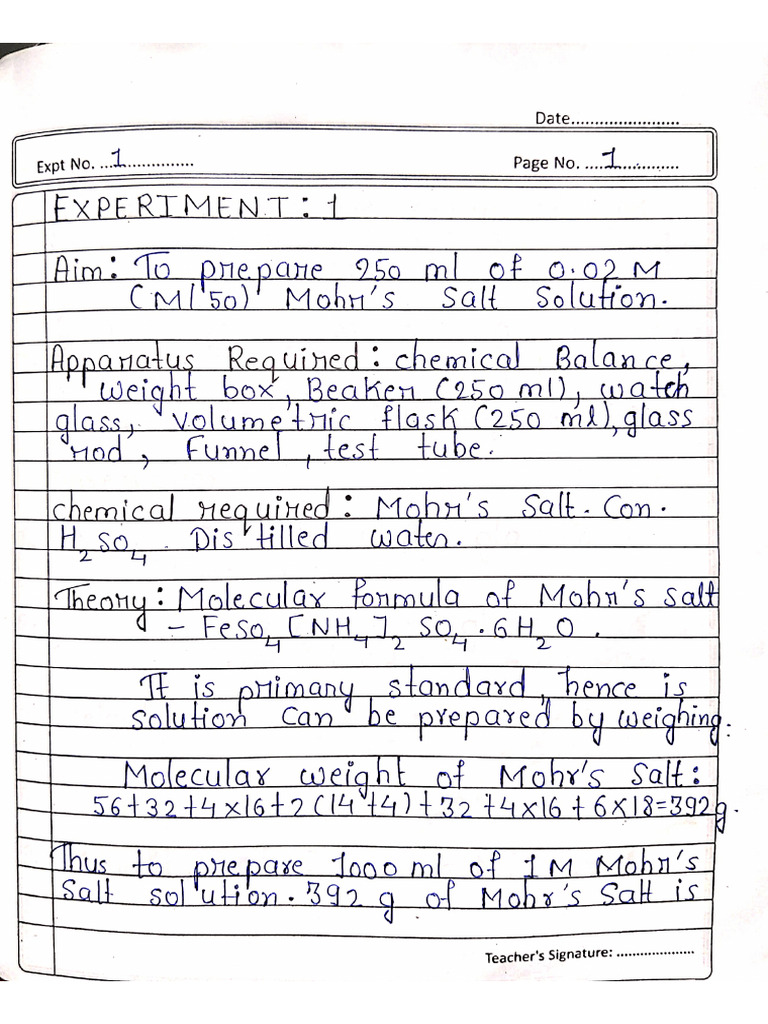 Date......................
Expt No. ...1...............
Page No. ....1............
EXPERIMENT: 1
Aim: To prepare 250 ml of 0.02 M
(M/50) Mohr's Salt Solution.
Apparatus Required: chemical Balance,
weight box, Beaker (250 ml), watch
glass, volumetric flask (250 ml), glass
rod, Funnel, test tube.
chemical required: Mohr's Salt. Con.
H₂SO₄. Distilled water.
Theory: Molecular formula of Mohr's salt
- FeSO₄ [NH₄]₂ SO₄ . 6H₂O.
It is primary standard, hence is
solution can be prepared by weighing.
Molecular weight of Mohr's Salt:
56+32+4×16+2(14+4)+32+4×16+6×18=392g.
Thus to prepare 1000 ml of 1M Mohr's
Salt solution. 392 g of Mohr's Salt is
Teacher's Signature: ....................